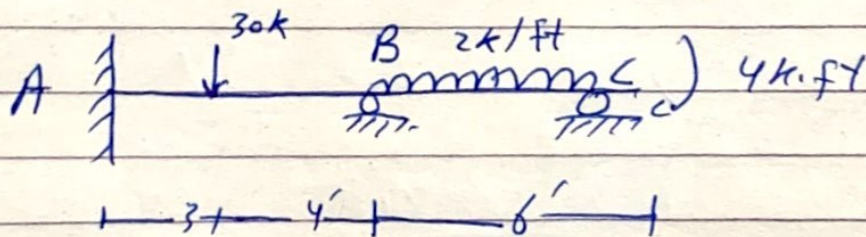 30k
A B 2k/ft C 4k.ft
3 4' 6'